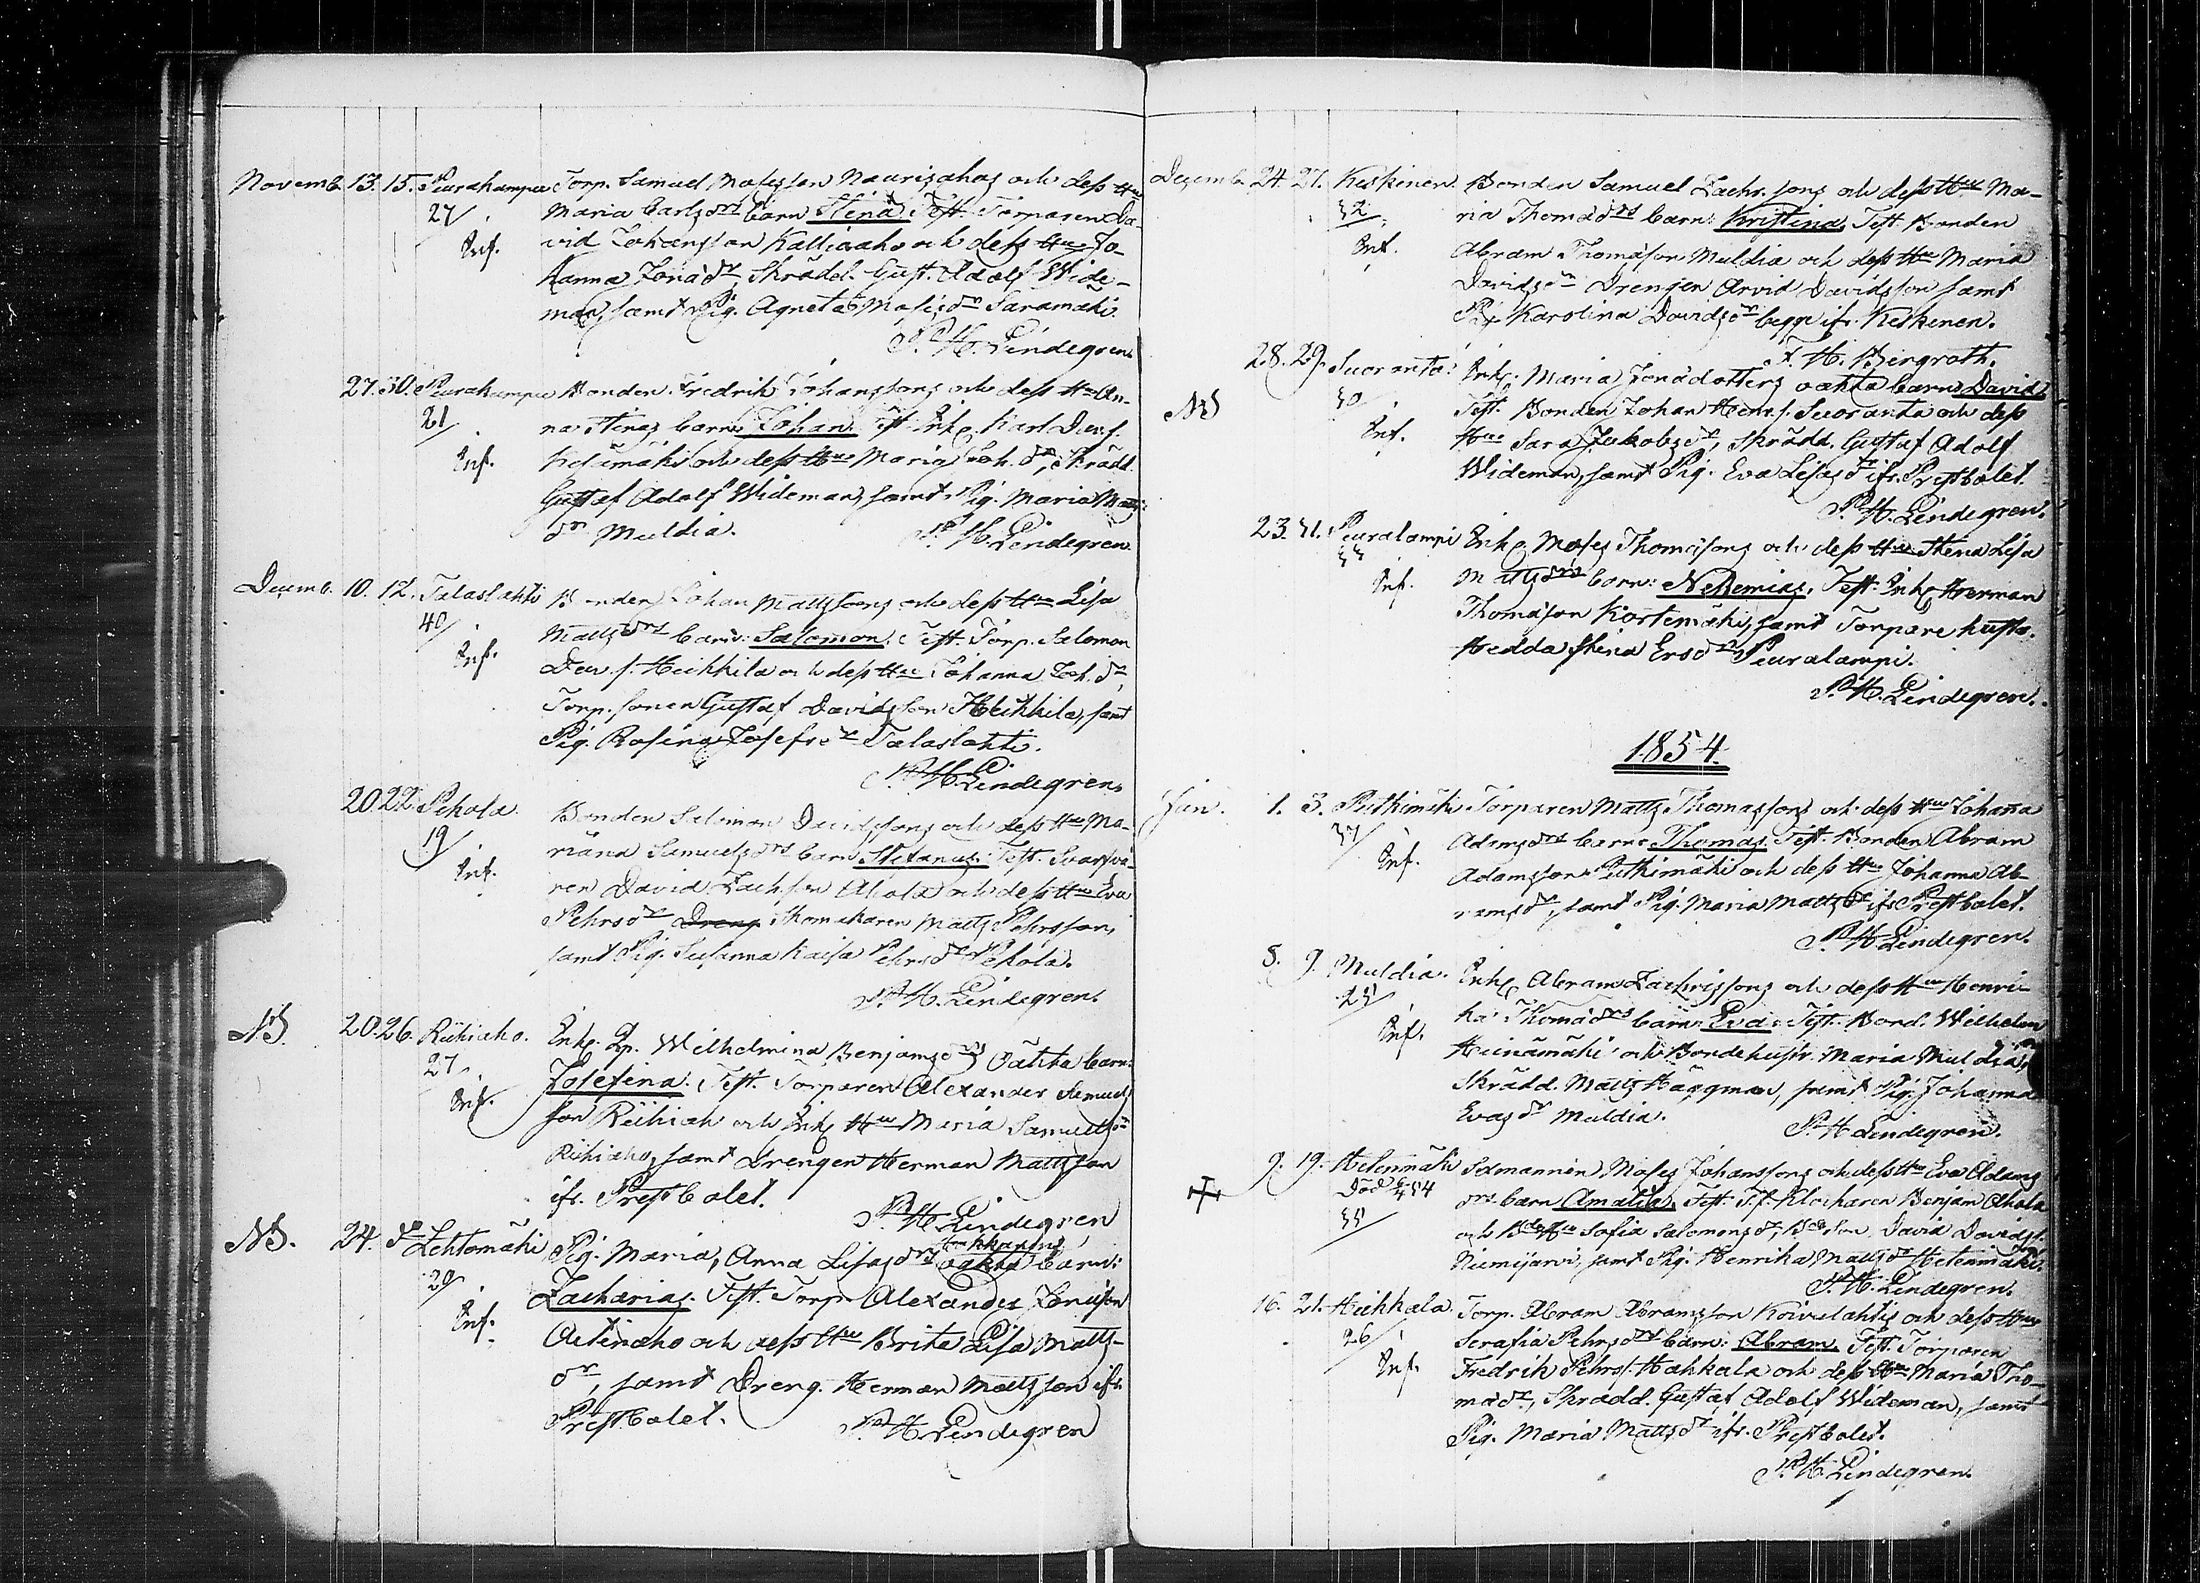 Novemb. 13. 15. Peurahampu Torp. Samuel Mosesson Naurisahos och dess Hu
27/ Maria Carlsdrs barn Stina Test. Torparen Da-
Inf. vid Johansson Kalliaho och dess Hu Jo-
hanna Jonädr, Skrädd. Gust. Adolf Wide-
man, samt Pig. Agneta Mosisdr Saramäki.
P. H. Lindegren.
27. 30. Peurahampu Bonden Fredrik Johanssons och dess Hu An-
21/ na Stinas barn Johan Test. Inh. Karl Dav.s.
Inf. Kesämäki och dess Hu Maria Joh. dr, Skrädd.
Gustaf Adolf Wideman, samt Pig. Maria Matts
dr Muldia. P. H. Lindegren.
Decemb. 10. 12. Talaslahti Bonden Johan Mattssons och dess Hu Lisa
40/ Mattsdrs barn: Salomon. Test. Torp. Salomon
Inf. Dav. s. Heikkilä och dess Hu Johanna Joh. dr
Torp. sonen Gustaf Davidsson Heikkilä, samt
Pig. Rosina Josefsdr Talaslahti.
P. H. Lindegren.
20. 22. Pekola Bonden Salomon Davidssons och dess Hu Ma-
19/ riana Samuelsdrs barn Stefanus. Test. Svarfva-
Inf. ren David Zach.son Ahola och dess Hu Eva
Pehrsdr Dreng Skomakaren Matts Pehrsson,
samt Pig. Susanna Kaisa Pehrsdr Pekola.
P. H. Lindegren.
NB. 20. 26. Riihiaho. Inh. Qp. Wilhelmina Benjamsdrs Oäkta barn:
27. Josefina. Test. Torparen Alexander Samuels
Inf. son Riihiah och Inh. Hu Maria Samuelsdr
Riihiaho, samt Drengen Herman Mattsson
ifr. Prestbolet.
P. H. Lindegren
NB. 24. do Lehtomäki Pig. Maria, Anna Lisasdrs oäkta barn:
29/ Zacharias. Test. Torp. Alexander Jonäson
Inf. Autinaho och dess Hu Brita Lisa Matts-
dr, samt Dreng. Herman Mattsson ifr.
Prestbolet. P. H. Lindegren
Decemb. 24. 27. Keskinen. Bonden Samuel Zachr. sons och dess Hu Ma-
32/ ria Thomädrs barn: Kristina, Test. Bonden
Inf. Abram Thomäson Muldia och dess Hu Maria
Davidsdr Drengen Arvid Davidsson samt
Pig Karolina Davidsdr begge ifr. Keskinen.
F. H. Bergroth.
28. 29. Suoranta. Inh. Maria Jonädotters oäkta barn David
NB 30/ Test. Bonden Johan Henr. s. Suoranta och dess
Inf. Hu Sara Jakobsdr, Skrädd. Gustaf Adolf
Wideman, samt Pig. Eva Lisasdr ifr. Prestbolet.
P. H. Lindegren.
23. 31. Peuralampi Inh. Moses Thomäsons och dess Hu Stina Lisa
33 Mattsdrs barn: Nehemias, Test. Inh. Herman
Inf. Thomäson Kortemäki, samt Torpare hustr.
Hedda Stina Ersdr Peuralampi.
P. H. Lindegren.
1854.
Jan. 1. 3. Putkimäki Torparen Matts Thomassons och dess Hu Johanna
37/ Adamsdrs barn Thomas. Test. Bonden Abram
Inf. Adamsson Putkimäki och dess Hu Johanna Ab-
ramsdr, samt Pig. Maria Mattsdr ifr. Prestbolet.
P. H. Lindegren.
8. 9. Muldia. Inh. Abram Zachrissons och dess Hu Henri-
25/ ka Thomädrs barn: Eva. Test. Bond. Wilhelm
Inf. Heinämäki och Bondehustr. Maria Muldia,
Skrädd. Matts Häggman, samt Pig. Johanna
Evasdr Muldia. P. H. Lindegren.
9. 19. Hetenmäki Sexmannen Moses Johanssons och dess Hu Eva Adams
Död 54 drs barn Amalia. Test. T.f. Klockaren Benjam Ahola
35/ och Hu Sofia Salomonsdr, Bdeson David Davids.
Niemijärvi, samt Pig. Henrika Mattsdr Hetenmäki.
P. H. Lindegren.
16. 21. Heikkala. Torp. Abram Abramsson Koivulahtis och dess Hu
26/ Serafia Pehrsdrs barn: Abram. Test. Torparen
Inf. Fredrik Pehrs. Hakkala och dess Hu Maria Tho-
mädr, Skrädd. Gustaf Adolf Wideman, samt
Pig. Maria Mattsdr ifr. Prestbolet.
P. H. Lindegren.